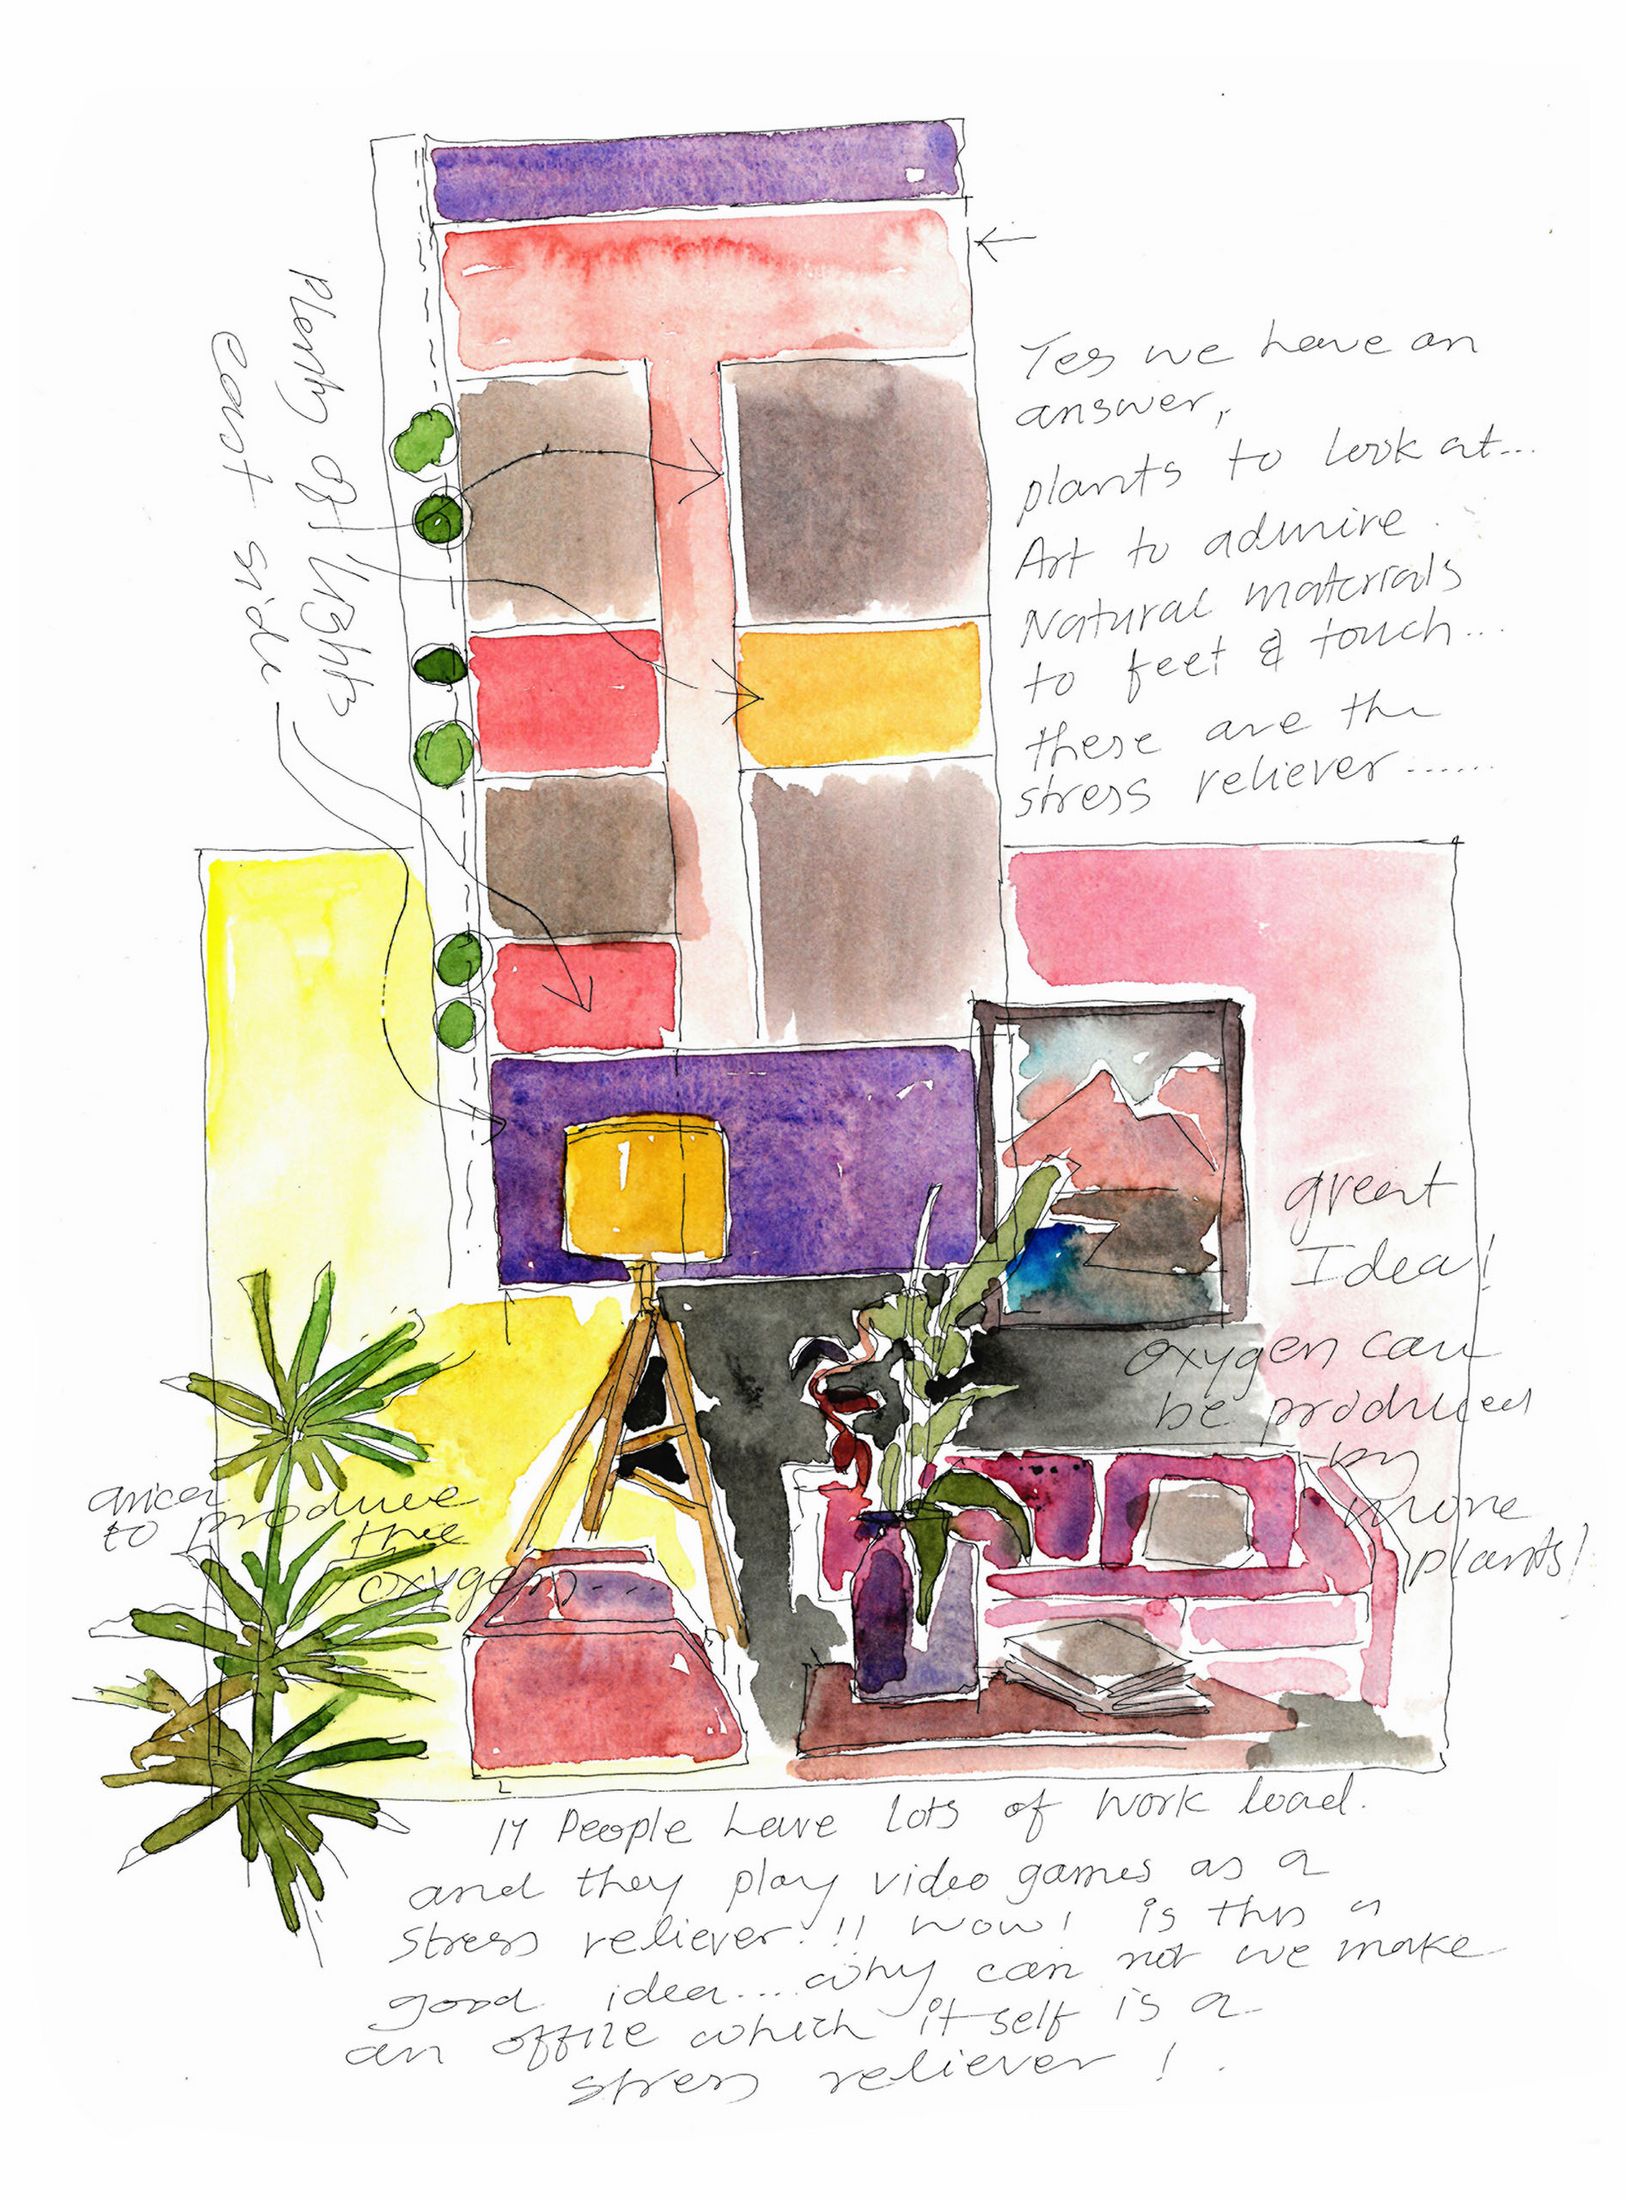 Plenty of lights
east side
Yes we have an
answer,
plants to look at...
Art to admire.
Natural materials
to feet & touch...
these are the
stress reliever......
great
Idea!
oxygen can
be produced
by
more
plants!
areca
to produce
the
oxygen....
IT People have lots of work load.
and they play video games as a
stress reliever!!! wow! is this a
good idea....why can not we make
an office which it self is a
stress reliever!.